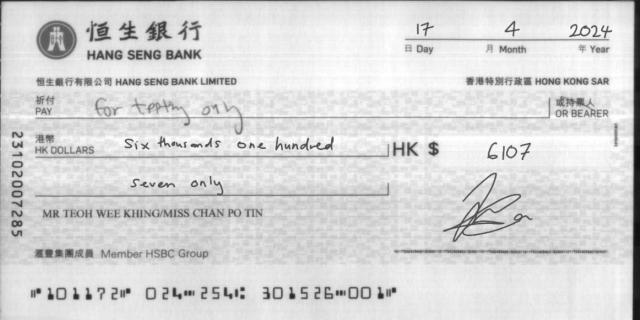 恒生銀行
HANG SENG BANK
17 4 2024
日 Day 月 Month 年 Year
恒生銀行有限公司 HANG SENG BANK LIMITED 香港特別行政區 HONG KONG SAR
祈付 for only 或持票人
PAY OR BEARER
港幣
HK DOLLARS six thousands one hundred HK $ 6107
seven only
MR TEOH WEE KHING/MISS CHAN PO TIN
滙豐集團成員 Member HSBC Group
⑈101172⑈ 024⑉254⑆ 301526⑉001⑈
23102007285